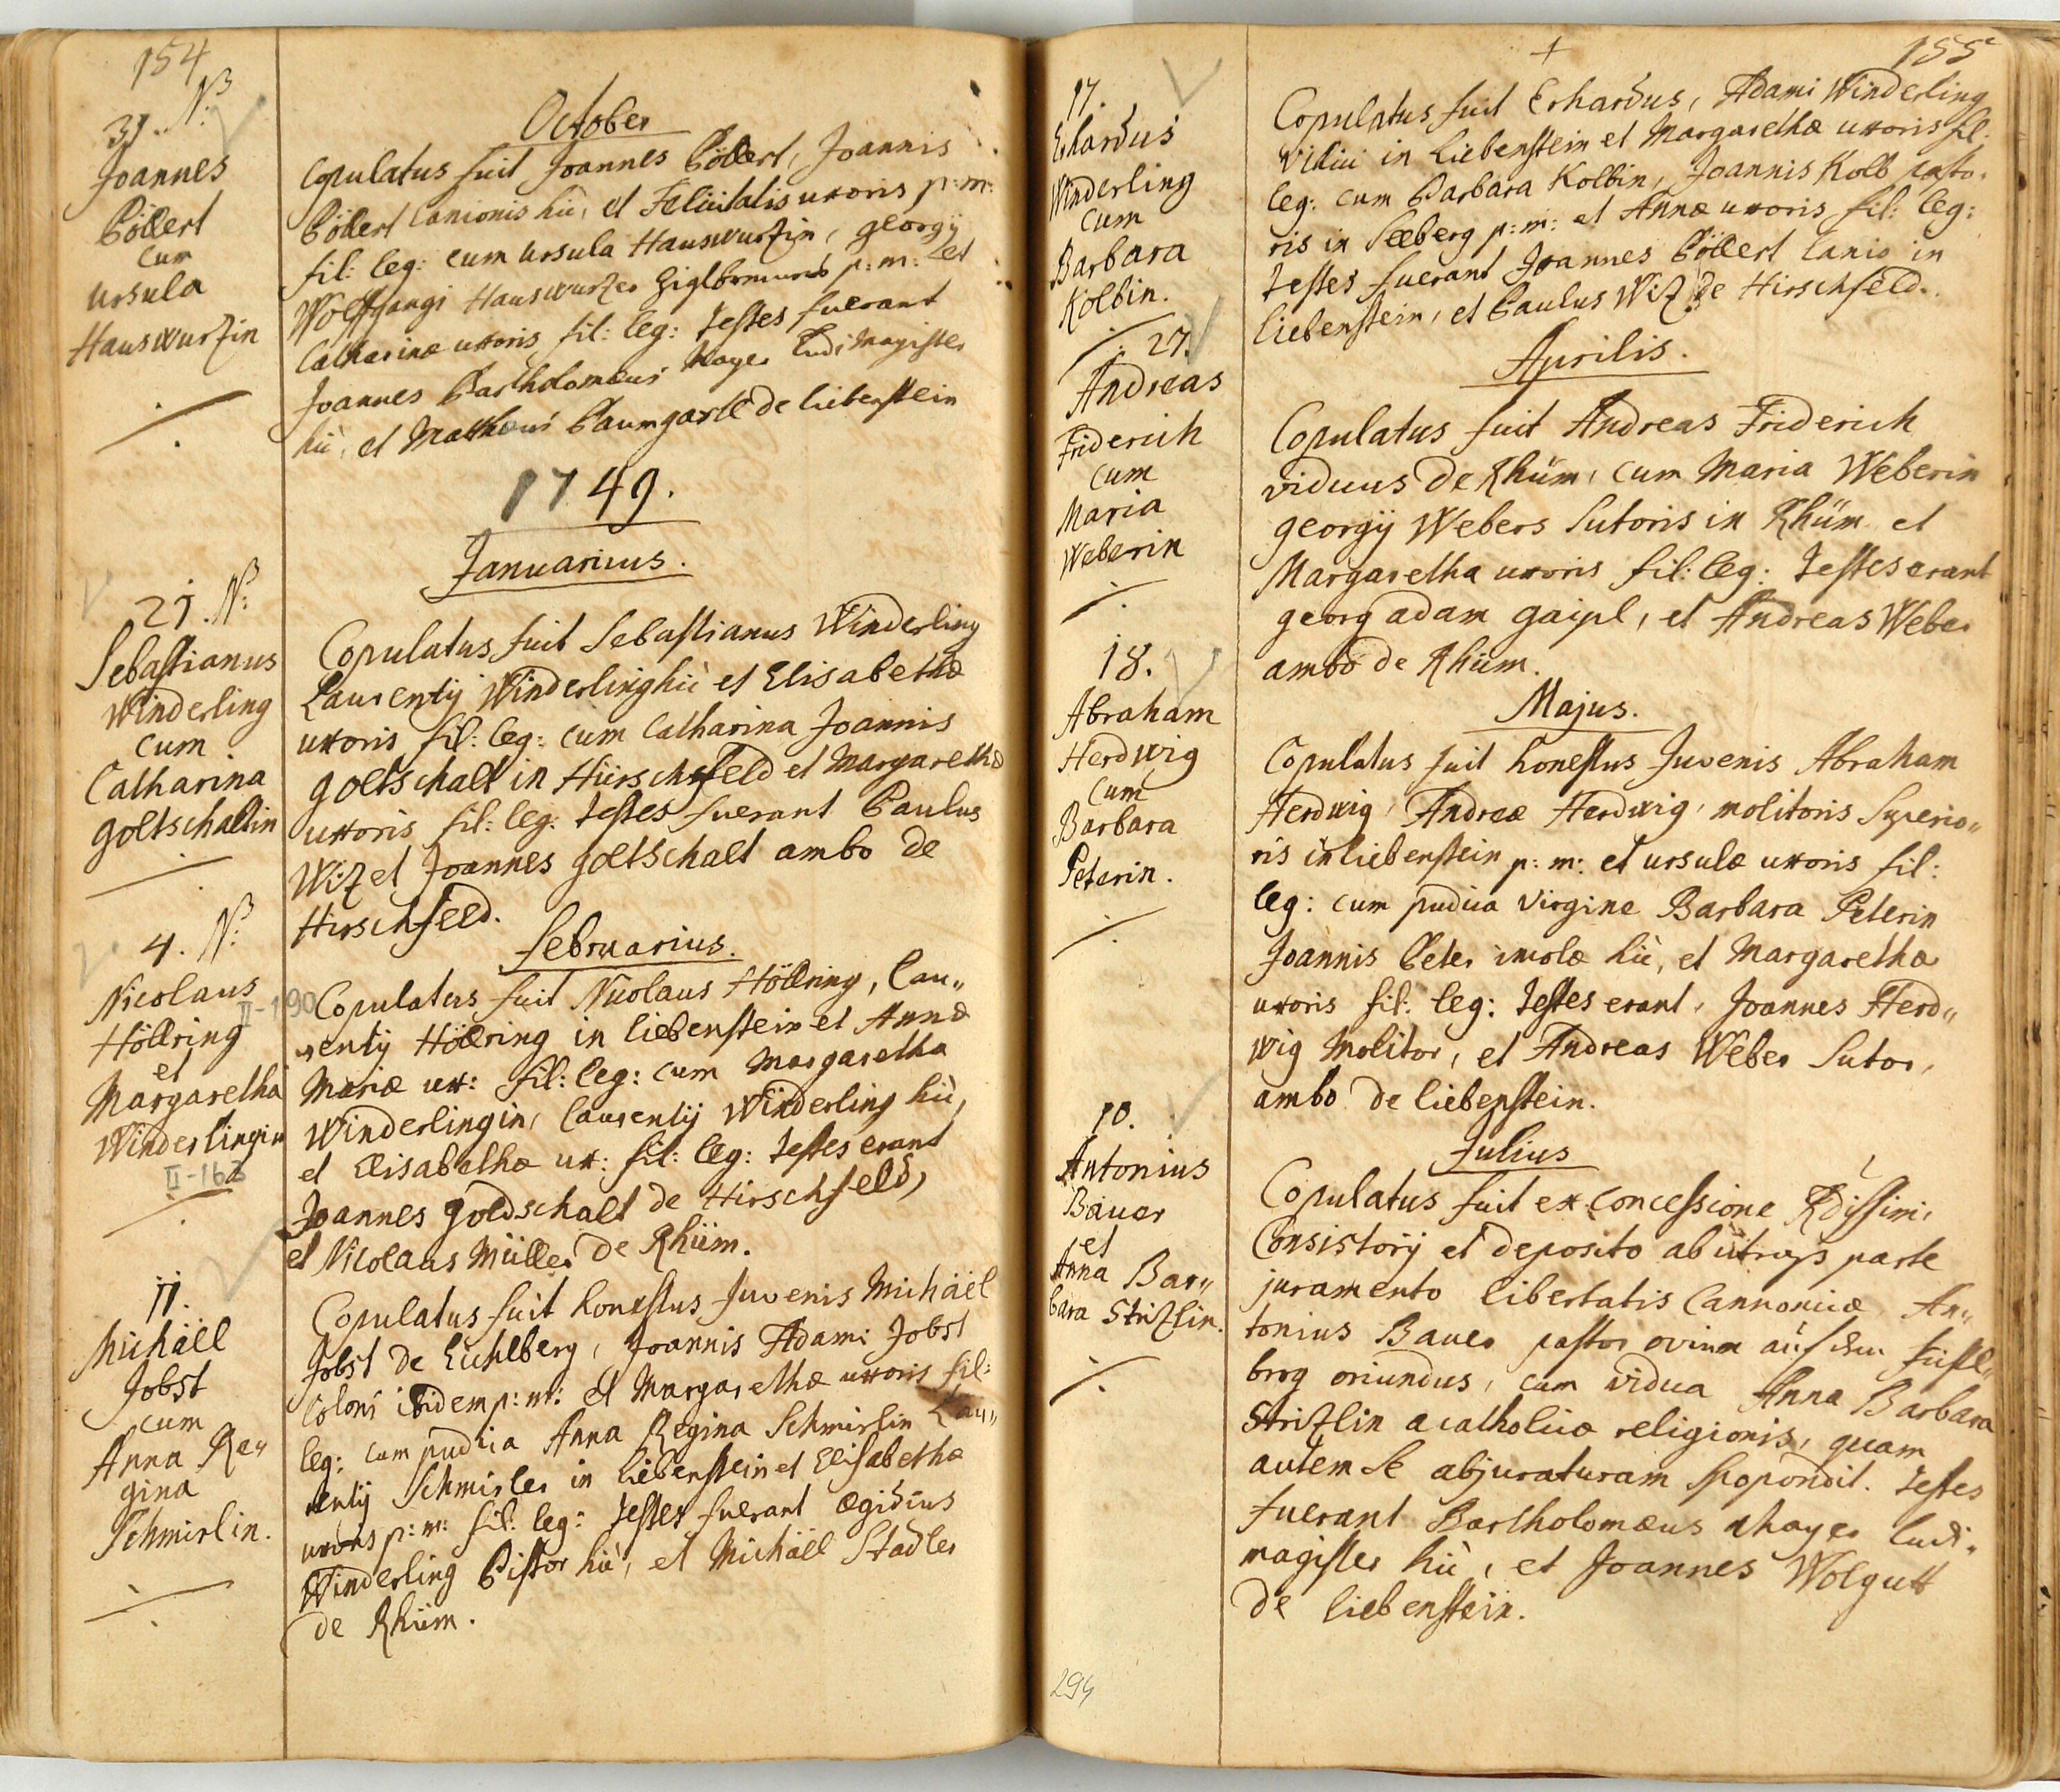 154
31. NB
Joannes
Böllert
cum
Ursula
Hauswurzin
October
Copulatus fuit Joannes Böllert, Joannis
Böllert Lanionis hic, et Felicitatis uxoris p: m:
fil: leg: cum Ursula Hauswurzin, georgÿ
Wolffgangi Hauswurzer p: m: et
Catharinæ uxoris fil: leg: Testes fuerant
Joannes Bartholomæus Mayer Ludi Magister
hic, et Matthæus Baumgartl de Liebenstein
1749.
Januarius.
21. NB
Sebastianus
Winderling
cum
Catharina
goltschaltin
Copulatus fuit Sebastianus Winderling
Laurentÿ Winderling hic et Elisabethæ
uxoris fil: leg: cum Catharina Joannis
goltschalt in Hirschfeld et Margarethæ
uxoris fil: leg: Testes fuerant Paulus
Wiz et Joannes goltschalt ambo de
Hirschfeld.
Februarius.
4. NB
Nicolaus
II-190
Höllring
et
Margaretha
Winderlingin
II-163
Copulatus fuit Nicolaus Höllring, Lau„
rentÿ Höllring in Liebenstein et Annæ
Mariæ ux: fil: leg: cum Margaretha
Winderlingin, Laurentÿ Winderling hic,
et Elisabethæ ux: fil: leg: Testes erant
Joannes goldschalt de Hirschfeld,
et Nicolaus Müller de Rhüm.
11.
Michäel
Jobst
cum
Anna Re„
gina
Schmirlin.
Copulatus fuit honestus Juvenis Michäel
Jobst de Eichlberg, Joannis Adami Jobst
Coloni ibidem p: m: et Margarethæ uxoris fil:
leg: cum pudica Anna Regina Schmirlin Lau„
rentÿ Schmirler in Liebenstein et Elisabethæ
uxoris p: m: fil: leg: Testes fuerant Ægidius
Winderling Pistor hic, et Michäel Stadler
de Rhüm.
155
17.
Erhardus
Winderling
cum
Barbara
Kolbin.
Copulatus fuit Erhardus, Adami Winderling
in Liebenstein et Margarethæ uxoris fil:
leg: cum Barbara Kolbin, Joannis Kolb pasto„
ris in Seeberg p: m: et Annæ uxoris fil: leg:
Testes fuerant Joannes Böllert Lanio in
Liebenstein, et Paulus Wiz de Hirschfeld.
Aprilis.
27.
Andreas
Friderich
cum
Maria
Weberin
Copulatus fuit Andreas Friderich
viduus de Rhüm, cum Maria Weberin
georgÿ Webers Sutoris in Rhüm et
Margaretha uxoris fil: leg: Testes erant
georg adam gaipl, et Andreas Weber
ambo de Rhüm.
Majus.
18.
Abraham
Herdwig
cum
Barbara
Peterin.
Copulatus fuit honestus Juvenis Abraham
Herdwig, Andreæ Herdwig, molitoris Superio„
ris in Liebenstein p: m: et Ursulæ uxoris fil:
leg: cum pudica Virgine Barbara Peterin
Joannis Peter incolæ hic, et Margarethæ
uxoris fil: leg: Testes erant, Joannes Herd„
wig Molitor, et Andreas Weber Sutor,
ambo de Liebenstein.
Julius
10.
Antonius
Bauer
et
Anna Bar„
bara Strizlin.
Copulatus fuit ex Concessione Rdissimi
Consistorÿ et deposito ab utraqs parte
juramento libertatis Cannonicæ, An„
tonius Bauer pastor ovium auf dem
brog oriundus, cum vidua Anna Barbara
Strizlin acatholicæ religionis, quam
autem se abjuraturam Spopondit. Testes
fuerant Bartholomæus Mayer Ludi„
magister hic, et Joannes Wolgutt
de Liebenstein.
294